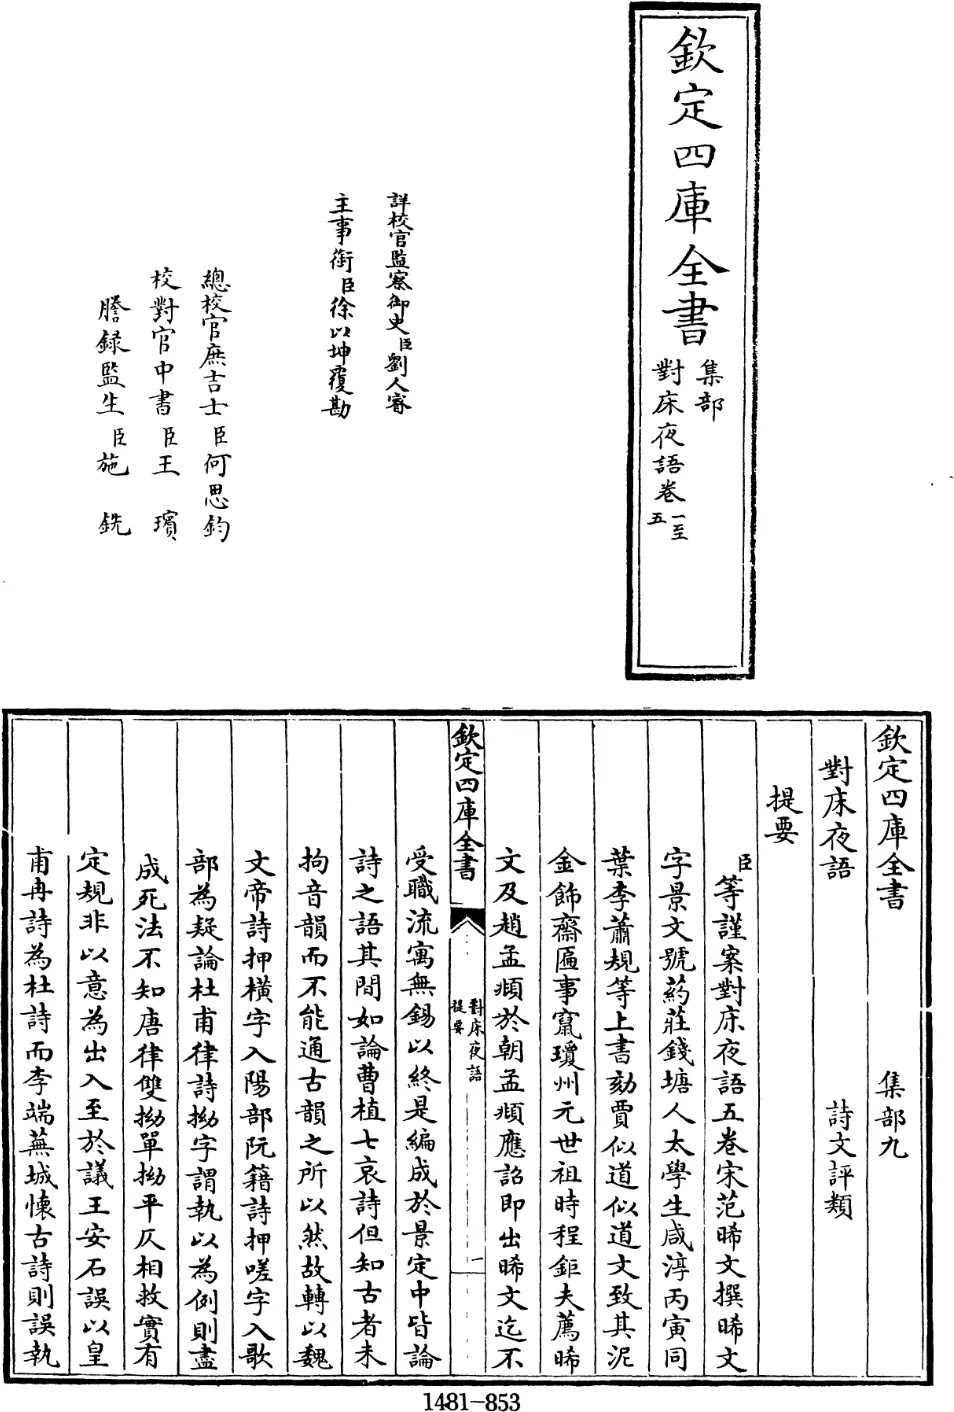 欽定四庫全書
集部
對床夜語卷一至
五
詳校官監察御史臣劉人睿
主事銜臣徐以坤覆勘
總校官庶吉士臣何思鈞
校對官中書臣王瓆
謄録監生臣施銑
欽定四庫全書 集部九
對床夜語 詩文評類
提要
臣等謹案對床夜語五卷宋范晞文撰晞文
字景文號葯莊錢塘人太學生咸淳丙寅同
葉李蕭規等上書劾賈似道似道文致其泥
金飾齋匾事竄瓊州元世祖時程鉅夫薦晞
文及趙孟頫於朝孟頫應詔即出晞文迄不
欽定四庫全書
對床夜語
提要
一
受職流寓無錫以終是編成於景定中皆論
詩之語其間如論曹植七哀詩但知古者未
拘音韻而不能通古韻之所以然故轉以魏
文帝詩押横字入陽部阮籍詩押嗟字入歌
部為疑論杜甫律詩拗字謂執以為例則盡
成死法不知唐律雙拗單拗平仄相救實有
定規非以意為出入至於議王安石誤以皇
甫冉詩為杜詩而李端蕪城懷古詩則誤執
1481-853